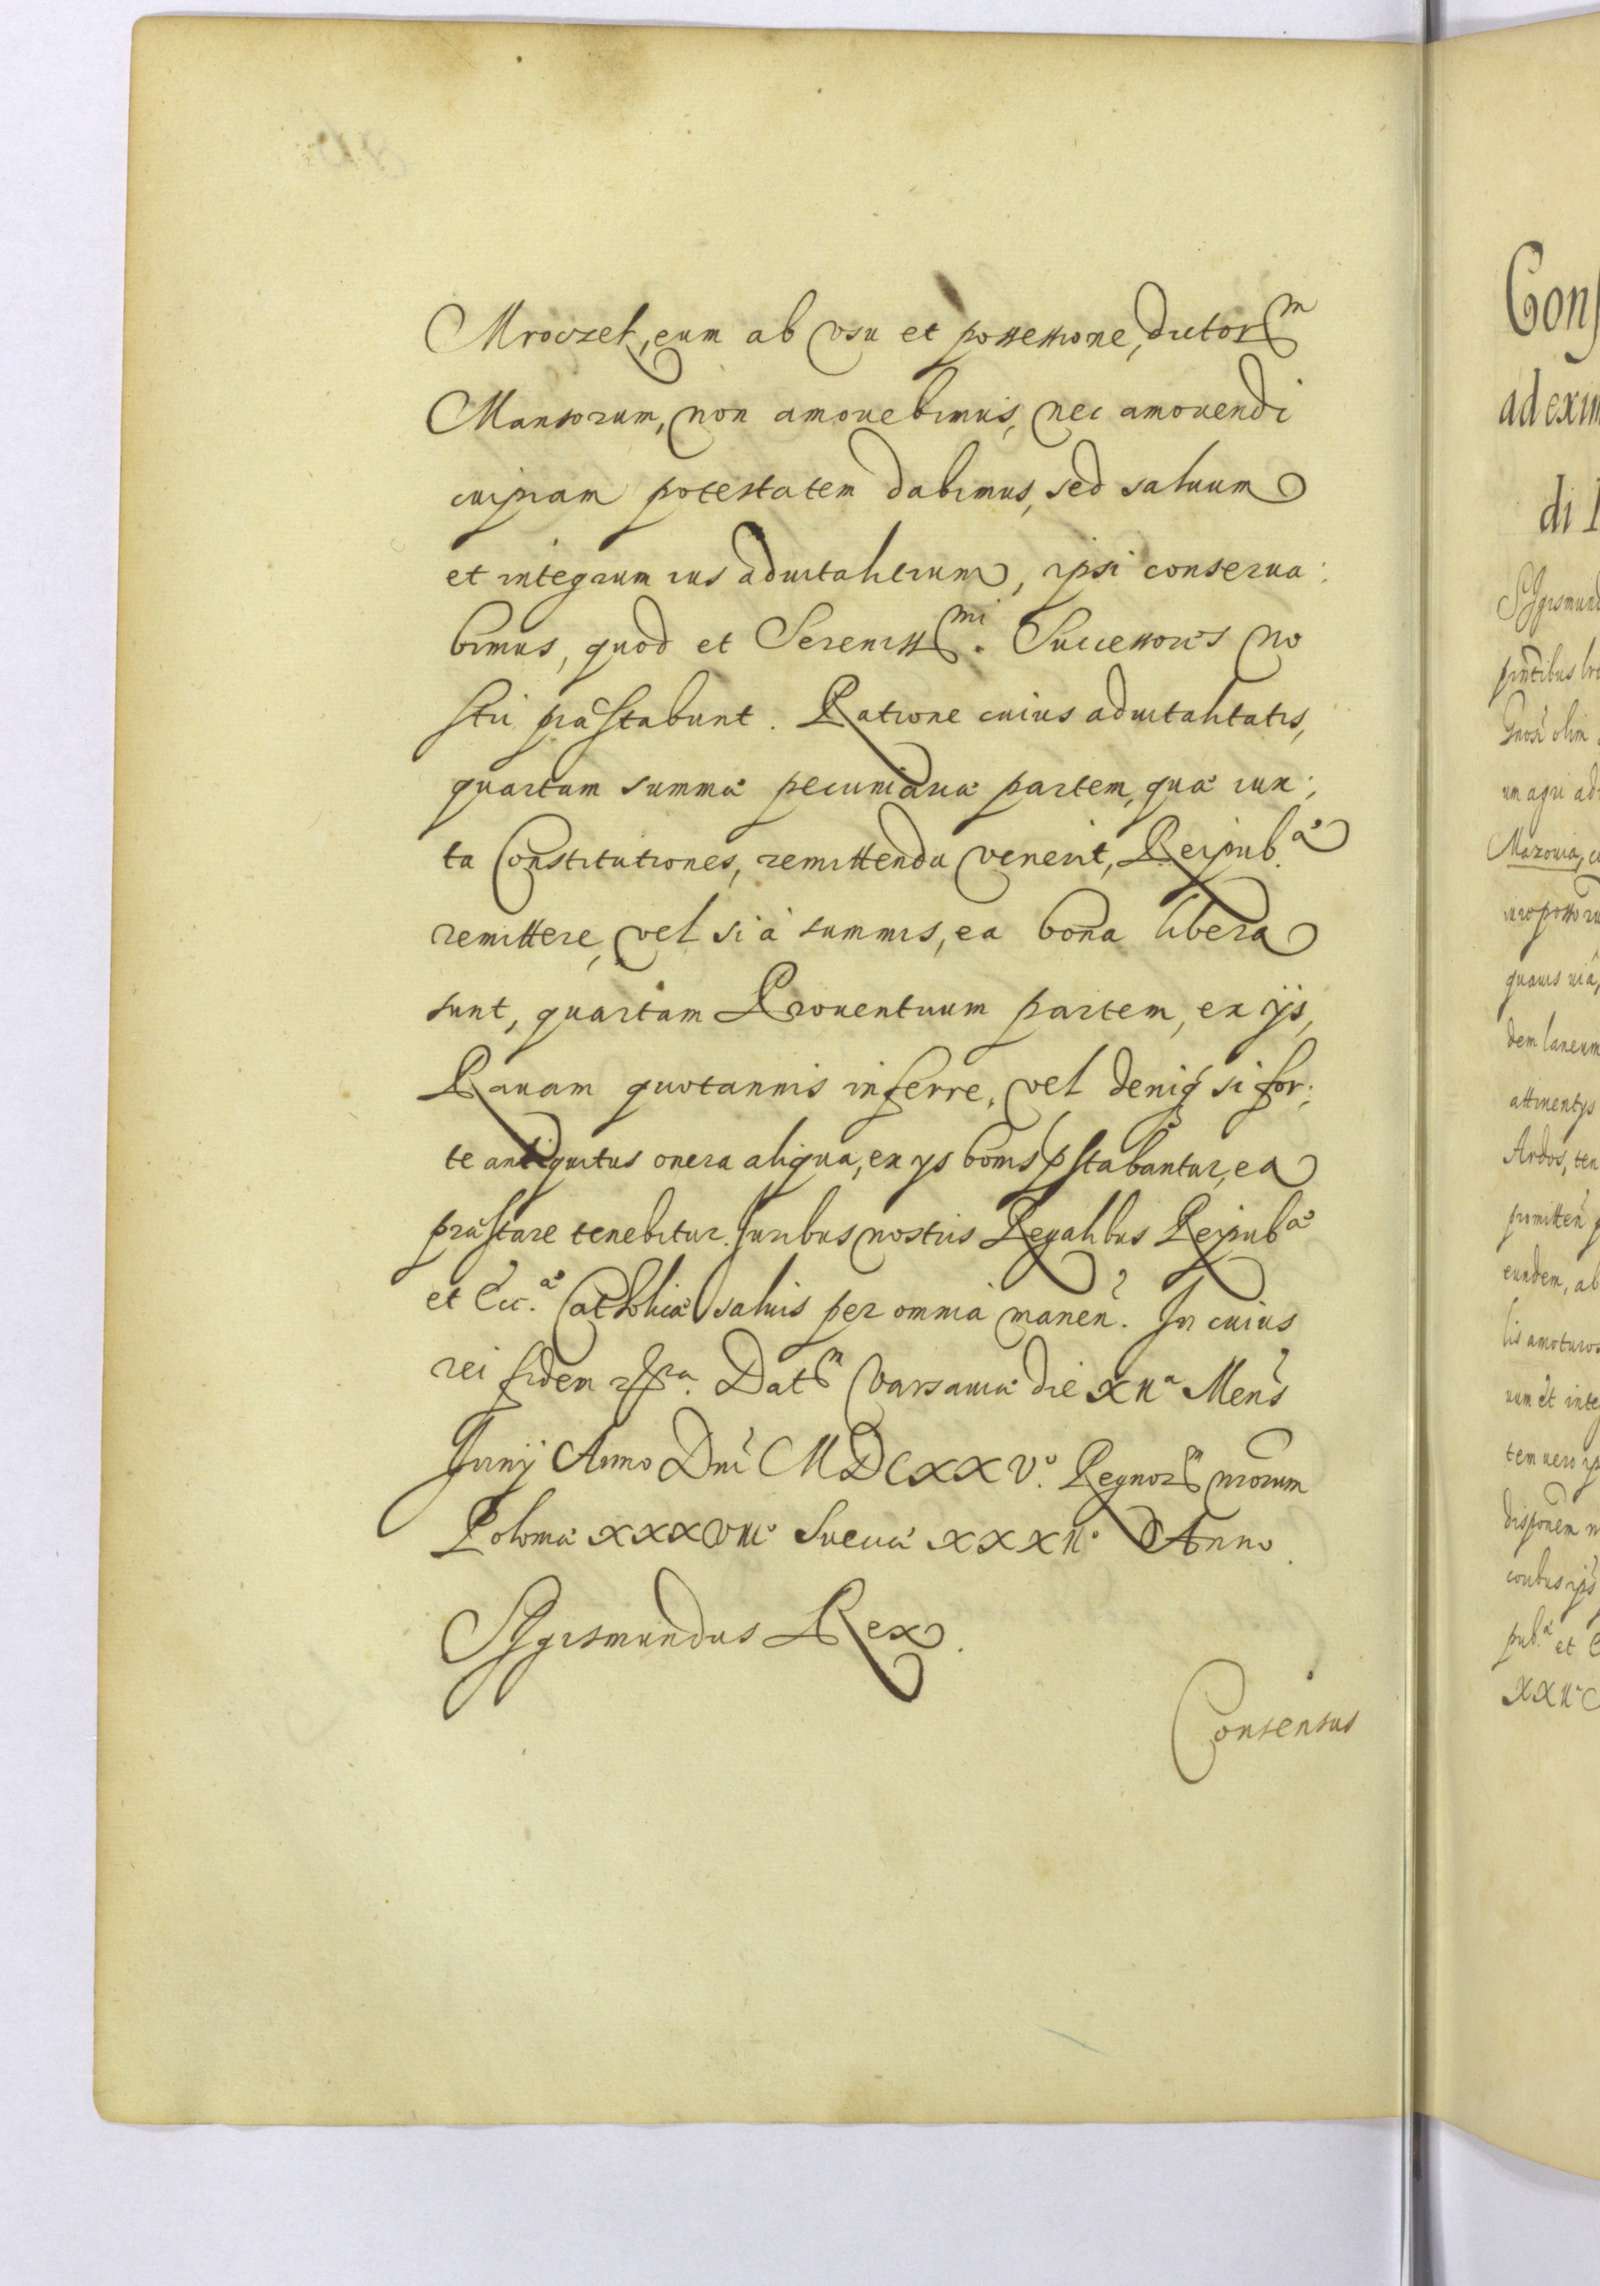 Mroczek, eum ab vsu et possessione, dictor^m
Mansorum, non amouebimus, nec amouendi
cuipiam potestatem dabimus, sed saluum
et integrum ius aduitalitium, ipsi conserua:
bimus, quod et Sereniss^mi. Successores no
stri præstabunt. Ratione cuius aduitalitatis,
quartam summæ pecuniariæ partem, quæ iux:
ta Constitutiones, remittenda venerit, Reipub.^æ
remittere, vel si à summis, ea bona libera
sunt, quartam Prouentuum partem, ex ijs,
Rauam quotannis inferre, vel deniq́ si for:
te antiquitus onera aliqua, ex ys bonis pstabantur, ea
præstare tenebitur. Juribus nostris Regalibus Reipub^æ
et Ecc.^æ Catholicæ saluis per omnia manen̄. In cuius
rei fidem Dat^m Varsauiæ die XII^a Mens̄
Junij Anno Dni MDCXXV^o. Regnor^m nrorum
Poloniæ XXXVIII^o Sueciæ XXXII^o Anno.
Sigismundus Rex.
Consensus
Cons
ad exim
di
Sigismund
Mazouia,
dem laneum
attinentys
eundem, ab
lis amoturos
tem vero
pub.^æ et
XXII^o